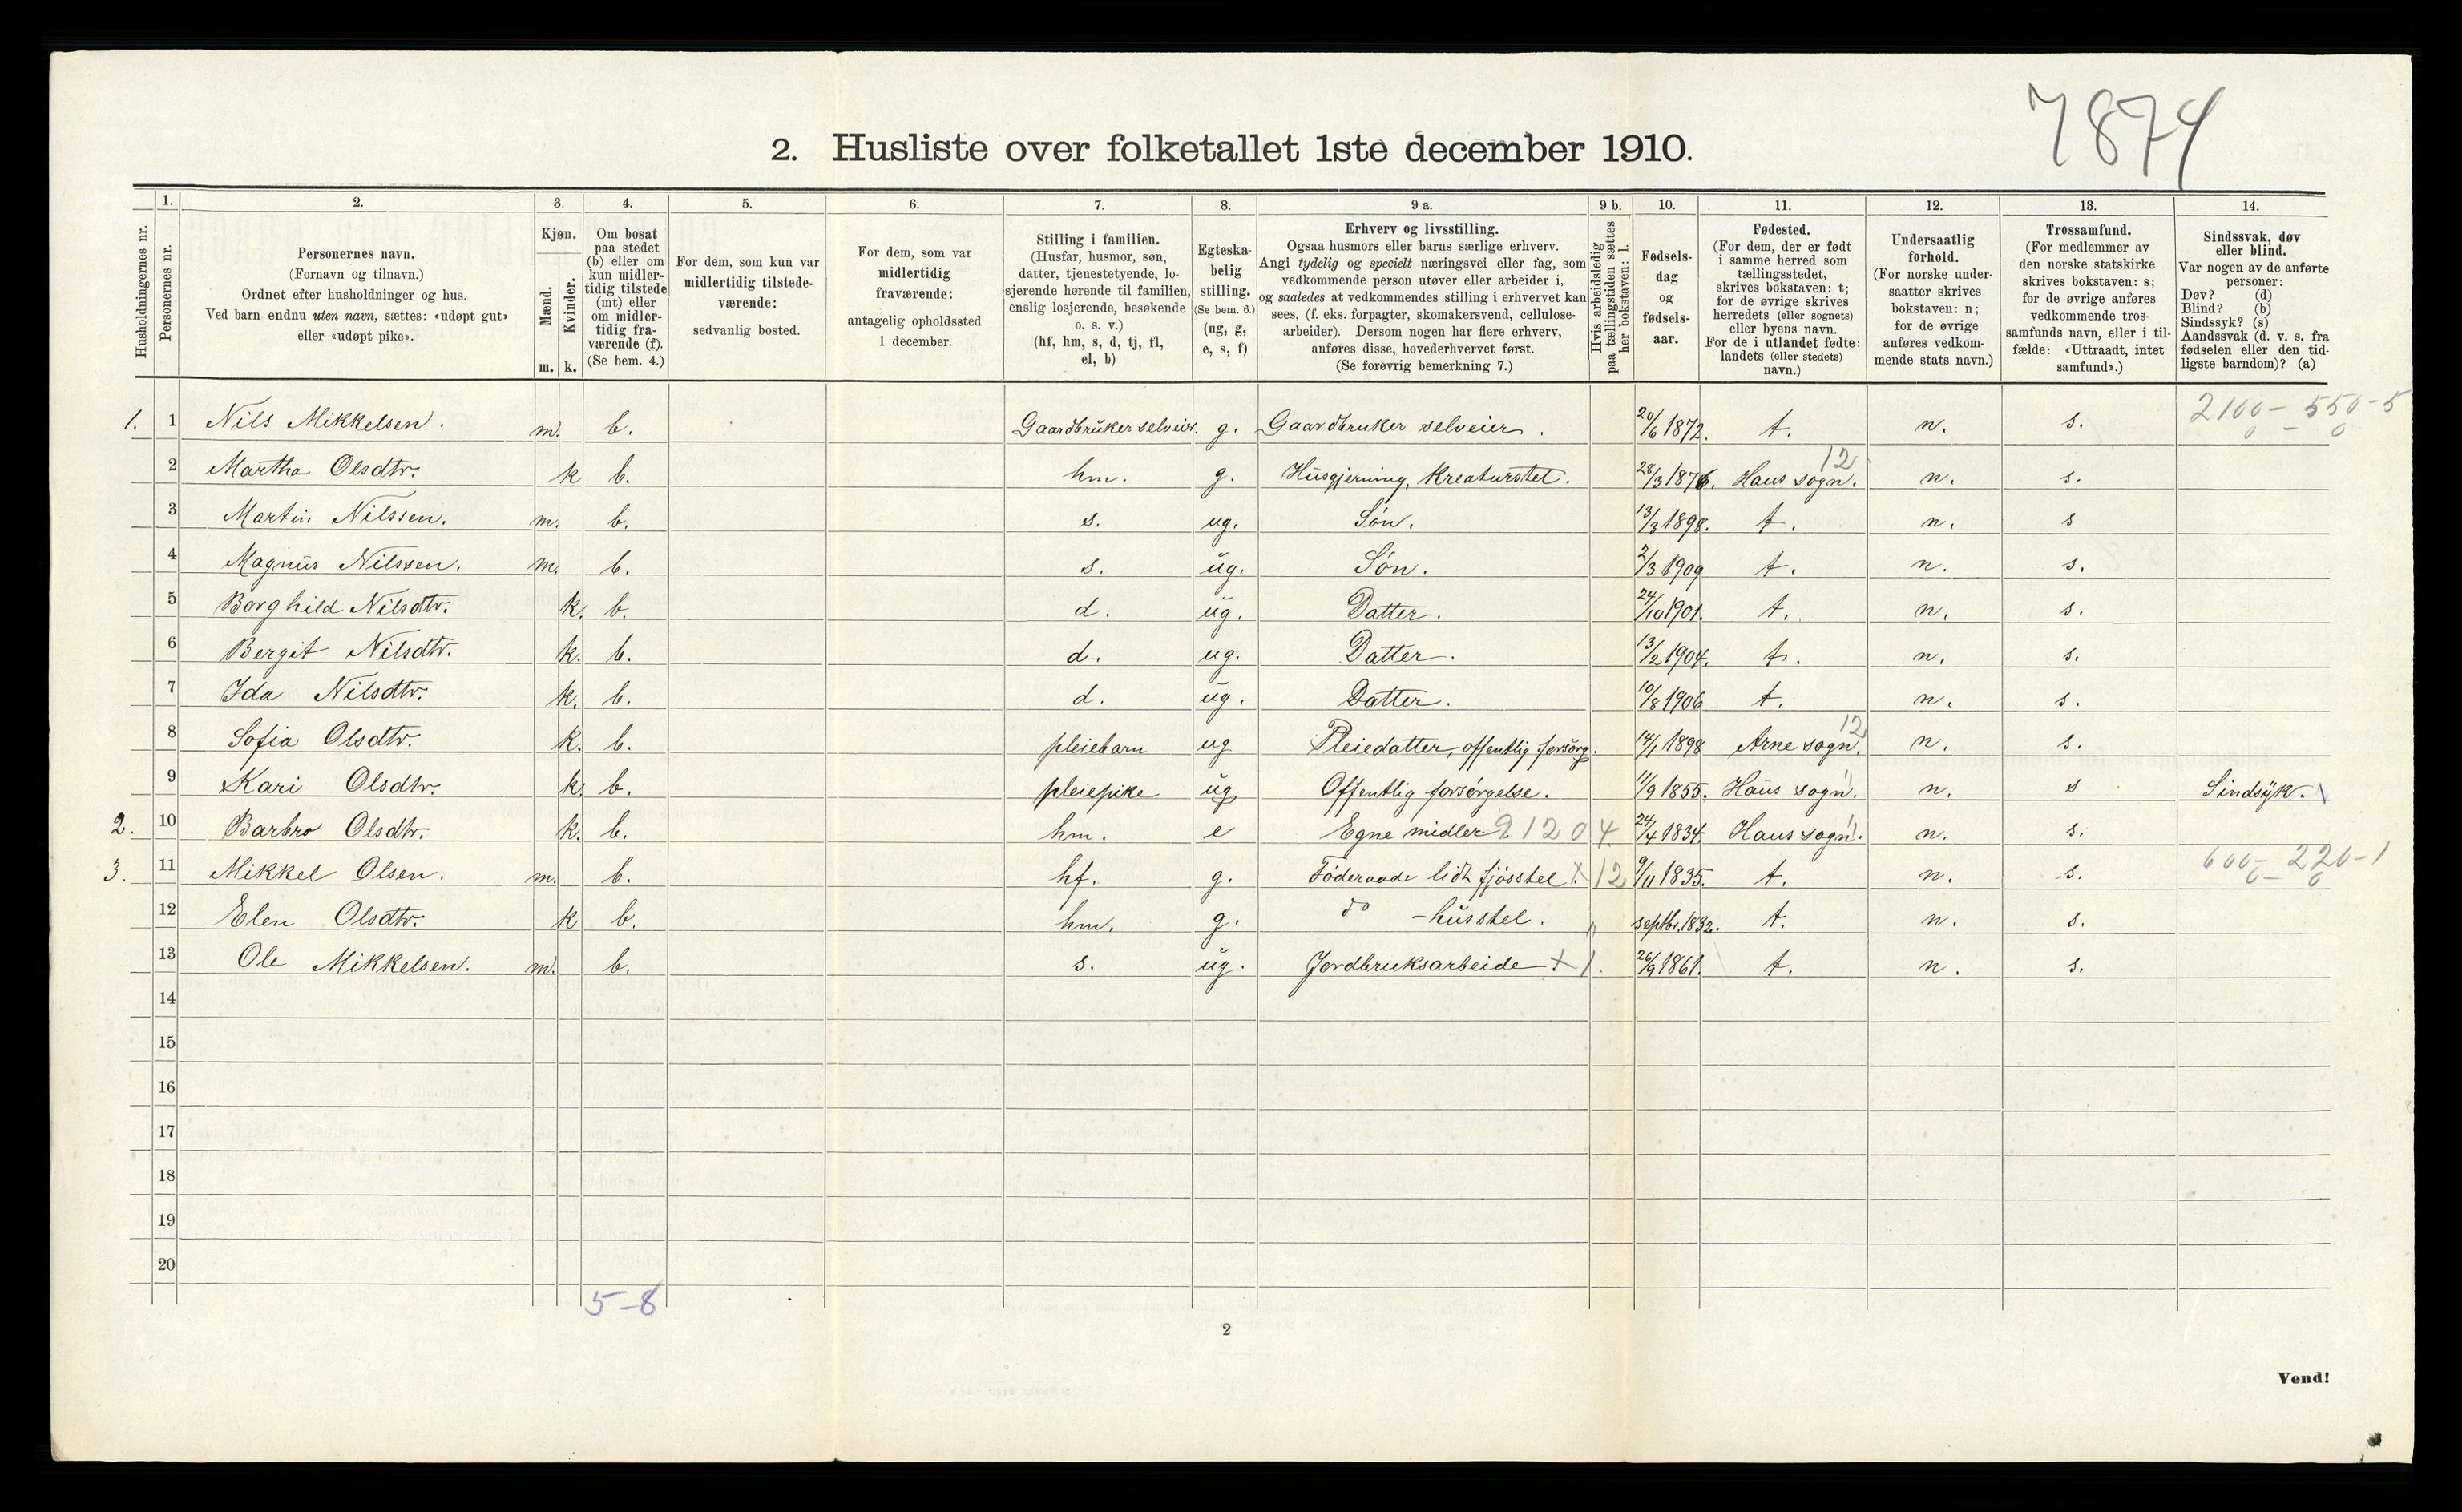 7874
2. Husliste over folketallet 1ste december 1910.
Husholdningernes nr.
1. Personernes nr.
2. Personernes navn.
(Fornavn og tilnavn.)
Ordnet efter husholdninger og hus.
Ved barn endnu uten navn, sættes: «udøpt gut»
eller «udøpt pike».
3. Kjøn.
Mænd. m.
Kvinder. k.
4. Om bosat
paa stedet
(b) eller om
kun midler-
tidig tilstede
(mt) eller
om midler-
tidig fra-
værende (f).
(Se bem. 4.)
5. For dem, som kun var
midlertidig tilstede-
værende:
sedvanlig bosted.
6. For dem, som var
midlertidig
fraværende:
antagelig opholdssted
1 december.
7. Stilling i familien.
(Husfar, husmor, søn,
datter, tjenestetyende, lo-
sjerende hørende til familien,
enslig losjerende, besøkende
o. s. v.)
(hf, hm, s, d, tj, fl,
el, b)
8. Egteska-
belig
stilling.
(Se bem. 6.)
(ug, g,
e, s, f)
9 a. Erhverv og livsstilling.
Ogsaa husmors eller barns særlige erhverv.
Angi tydelig og specielt næringsvei eller fag, som
vedkommende person utøver eller arbeider i,
og saaledes at vedkommendes stilling i erhvervet kan
sees, (f. eks. forpagter, skomakersvend, cellulose-
arbeider). Dersom nogen har flere erhverv,
anføres disse, hovederhvervet først.
(Se forøvrig bemerkning 7.)
9 b. Hvis arbeidsledig
paa tællingstiden sættes
her bokstaven: l.
10. Fødsels-
dag
og
fødsels-
aar.
11. Fødested.
(For dem, der er født
i samme herred som
tællingsstedet,
skrives bokstaven: t;
for de øvrige skrives
herredets (eller sognets)
eller byens navn.
For de i utlandet fødte:
landets (eller stedets)
navn.)
12. Undersaatlig
forhold.
(For norske under-
saatter skrives
bokstaven: n;
for de øvrige
anføres vedkom-
mende stats navn.)
13. Trossamfund.
(For medlemmer av
den norske statskirke
skrives bokstaven: s;
for de øvrige anføres
vedkommende tros-
samfunds navn, eller i til-
fælde: «Uttraadt, intet
samfund».)
14. Sindssvak, døv
eller blind.
Var nogen av de anførte
personer:
Døv? (d)
Blind? (b)
Sindssyk? (s)
Aandssvak (d. v. s. fra
fødselen eller den tid-
ligste barndom)? (a)
1. 1 Nils Mikkelsen. m. b. Gaardbruker selveier. g. Gaardbruker selveier. 20/6 1872. t. n. s. 2100 - 550-5
2 Martha Olsdtr. k b. hm. g. Husgjerning, Kreaturstel. 28/3 1876. Haus sogn. 12 n. s.
3 Martin Nilssen. m. b. s. ug. Søn. 13/3 1898. t. n. s
4 Magnus Nilssen. m. b. s. ug. Søn. 2/3 1909 t. n. s.
5 Borghild Nilsdtr. k. b. d. ug. Datter. 24/10 1901. t. n. s.
6 Bergit Nilsdtr. k. b. d. ug. Datter. 13/2 1904. t. n. s.
7 Ida Nilsdtr. k. b. d. ug. Datter. 10/8 1906 t. n. s.
8 Sofia Olsdtr. k. b. pleiebarn ug Pleiedatter, offentlig forsørg. 14/1 1898 Arne sogn. 12 n. s.
9 Kari Olsdtr. k. b. pleiepike ug Offentlig forsørgelse. 11/9 1855. Haus sogn. " n. s Sindsyk. \
2. 10 Barbro Olsdtr. k. b. hm. e Egne midler. 91204 24/4 1834. Haus sogn. " n. s.
3. 11 Mikkel Olsen. m. b. hf. g. Føderaade lidt fjøsstel. X 12 9/11 1835. t. n. s. 600 - 220-1
12 Elen Olsdtr. k b. hm. g. do - husstel. " septbr. 1832. t. n. s.
13 Ole Mikkelsen. m. b. s. ug. Jordbruksarbeide X 1. 26/9 1861. t. n. s.
14
15
16
17
18
19
20
5-8
2
Vend!